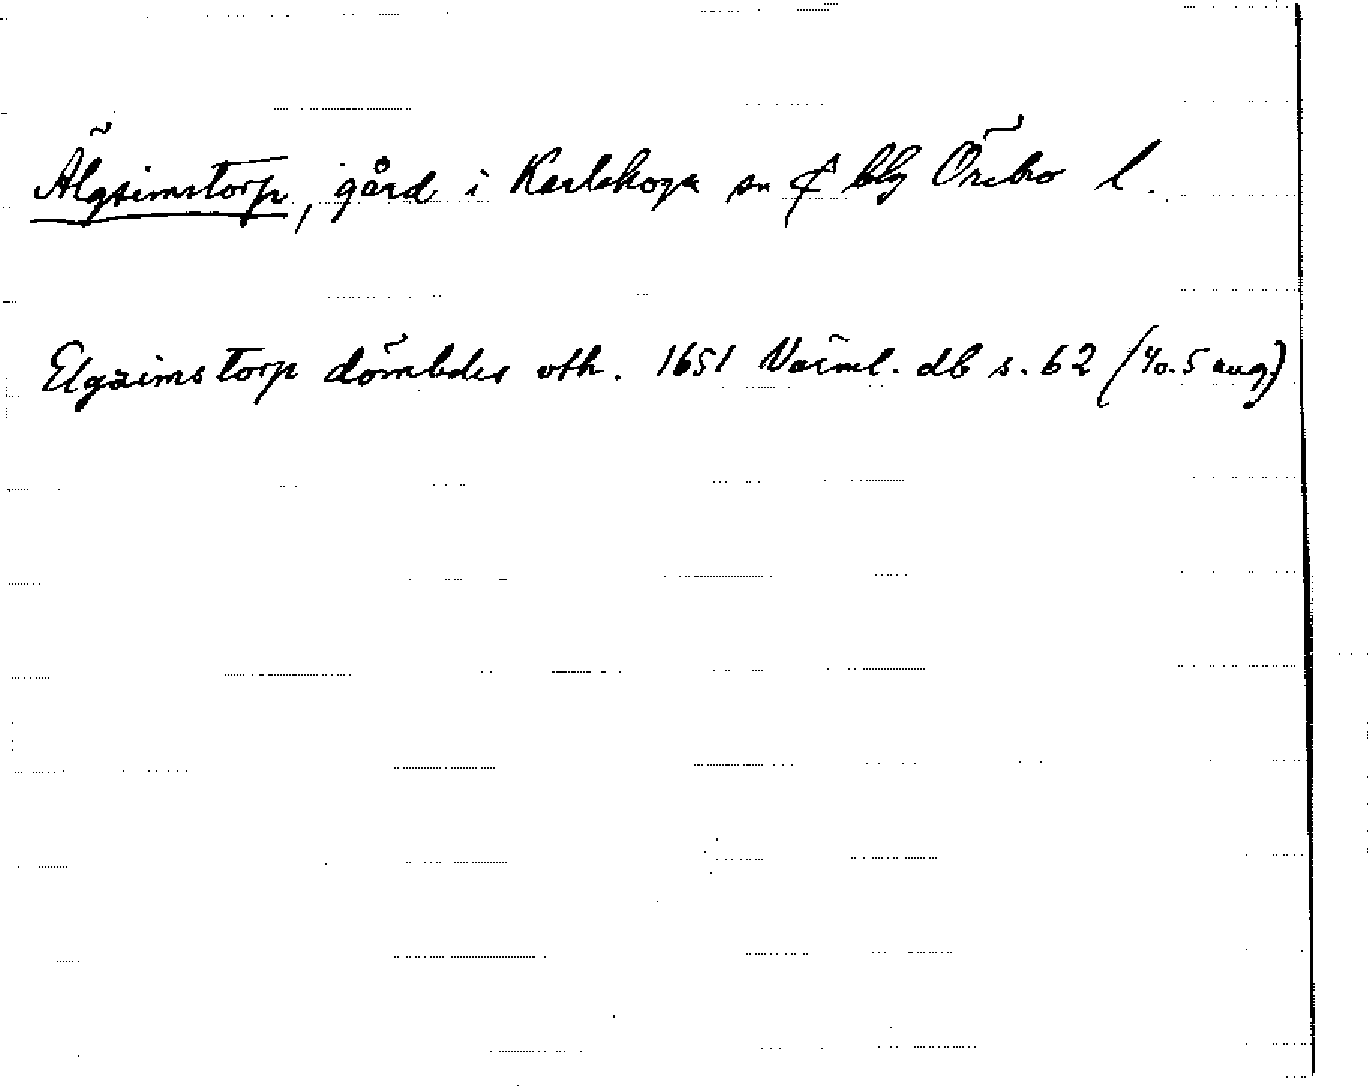 Älgsimstorp, gård i Karlskoga sn & blg Örebro l.
Elgsimstorp dömbdes vth. 1651 Värml. db s. 62 (40. 5 aug)